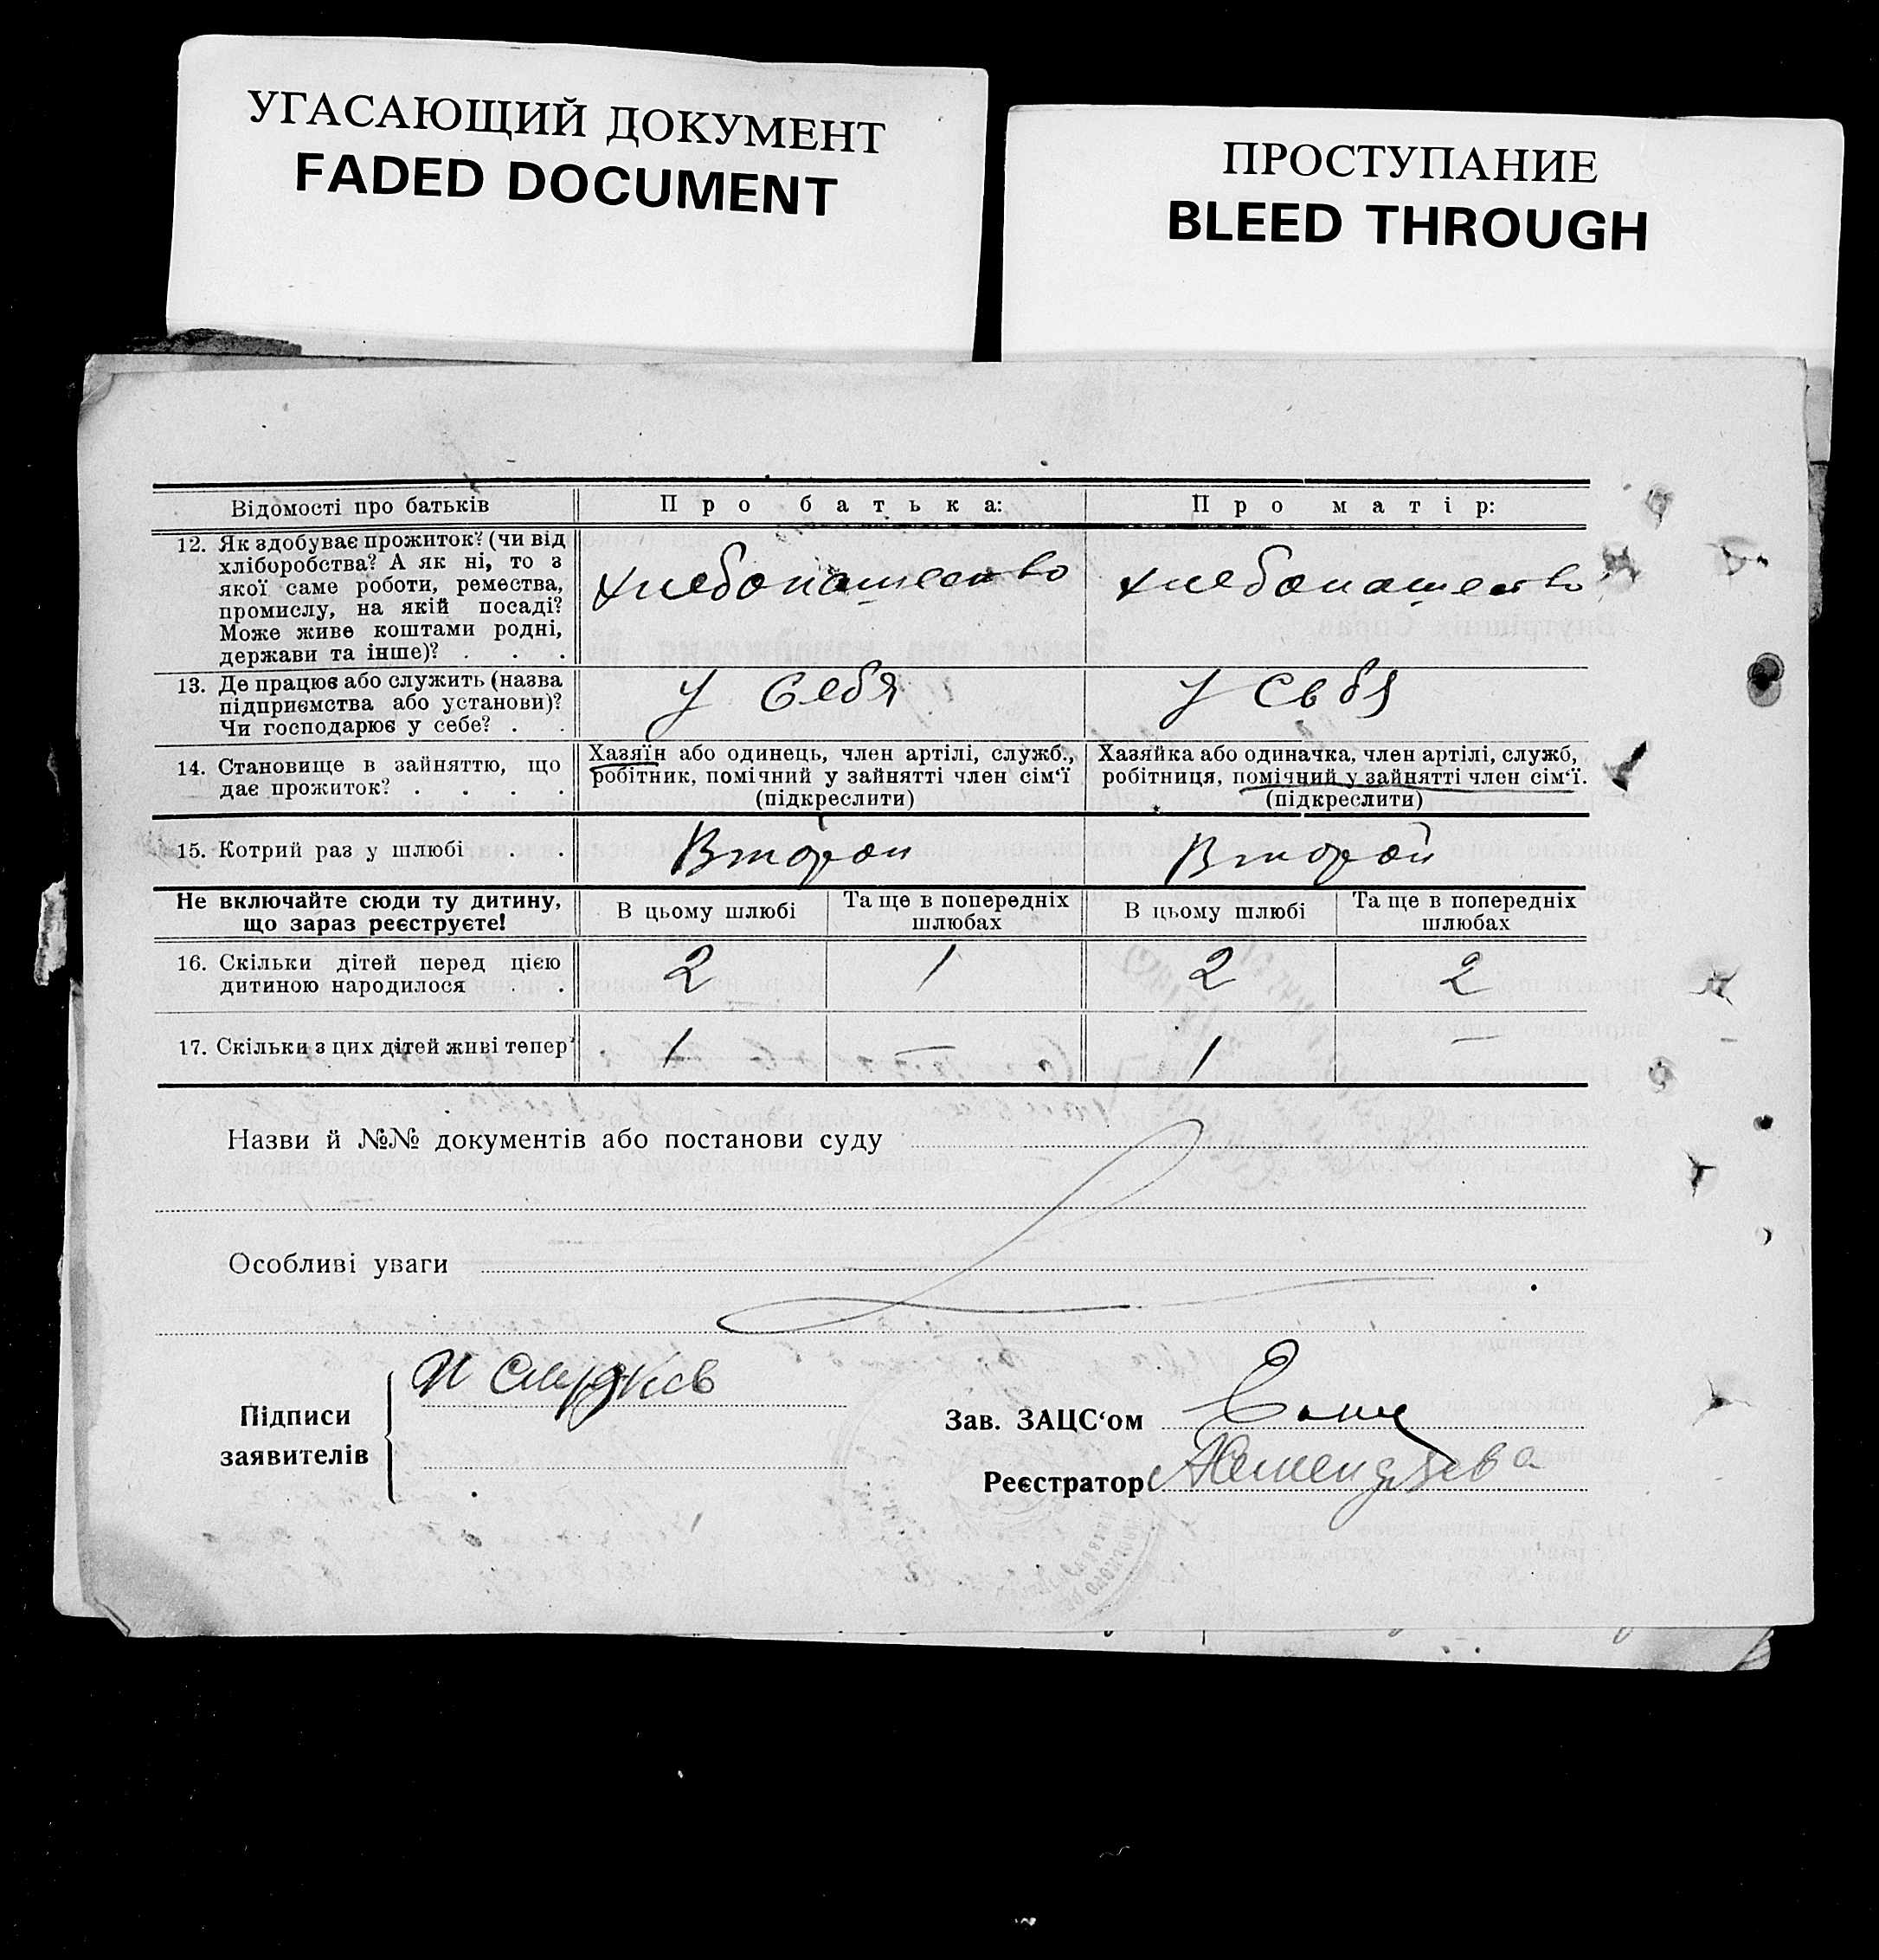 УГАСАЮЩИЙ ДОКУМЕНТ
FADED DOCUMENT
ПРОСТУПАНИЕ
BLEED THROUGH
Відомості про батьків
Про батька:
Про матір:
12. Як здобуває прожиток? (чи від
хліборобства? А як ні, то з
якої саме роботи, ремества,
промислу, на якій посаді?
Може живе коштами родні,
держави та інше)? . . .
хлебопашество
хлебопашество
13. Де працює або служить (назва
підприємства або установи)?
Чи господарює у себе? . .
У себя
У себя
14. Становище в зайняттю, що
дає прожиток? . . . .
Хазяїн або одинець, член артілі, служб.,
робітник, помічний у зайнятті член сім‘ї
(підкреслити)
Хазяйка або одиначка, член артілі, служб,
робітниця, помічний у зайнятті член сім‘ї.
(підкреслити)
15. Котрий раз у шлюбі . .
Второй
Второй
Не включайте сюди ту дитину,
що зараз реєструєте!
В цьому шлюбі
Та ще в попередніх
шлюбах
В цьому шлюбі
Та ще в попередніх
шлюбах
16. Скільки дітей перед цією
дитиною народилося . .
2
1
2
2
17. Скільки з цих дітей живі тепер
1
—
1
—
Назви й №№ документів або постанови суду
Особливі уваги
Підписи
заявителів
Зав. ЗАЦС‘ом
Реєстратор